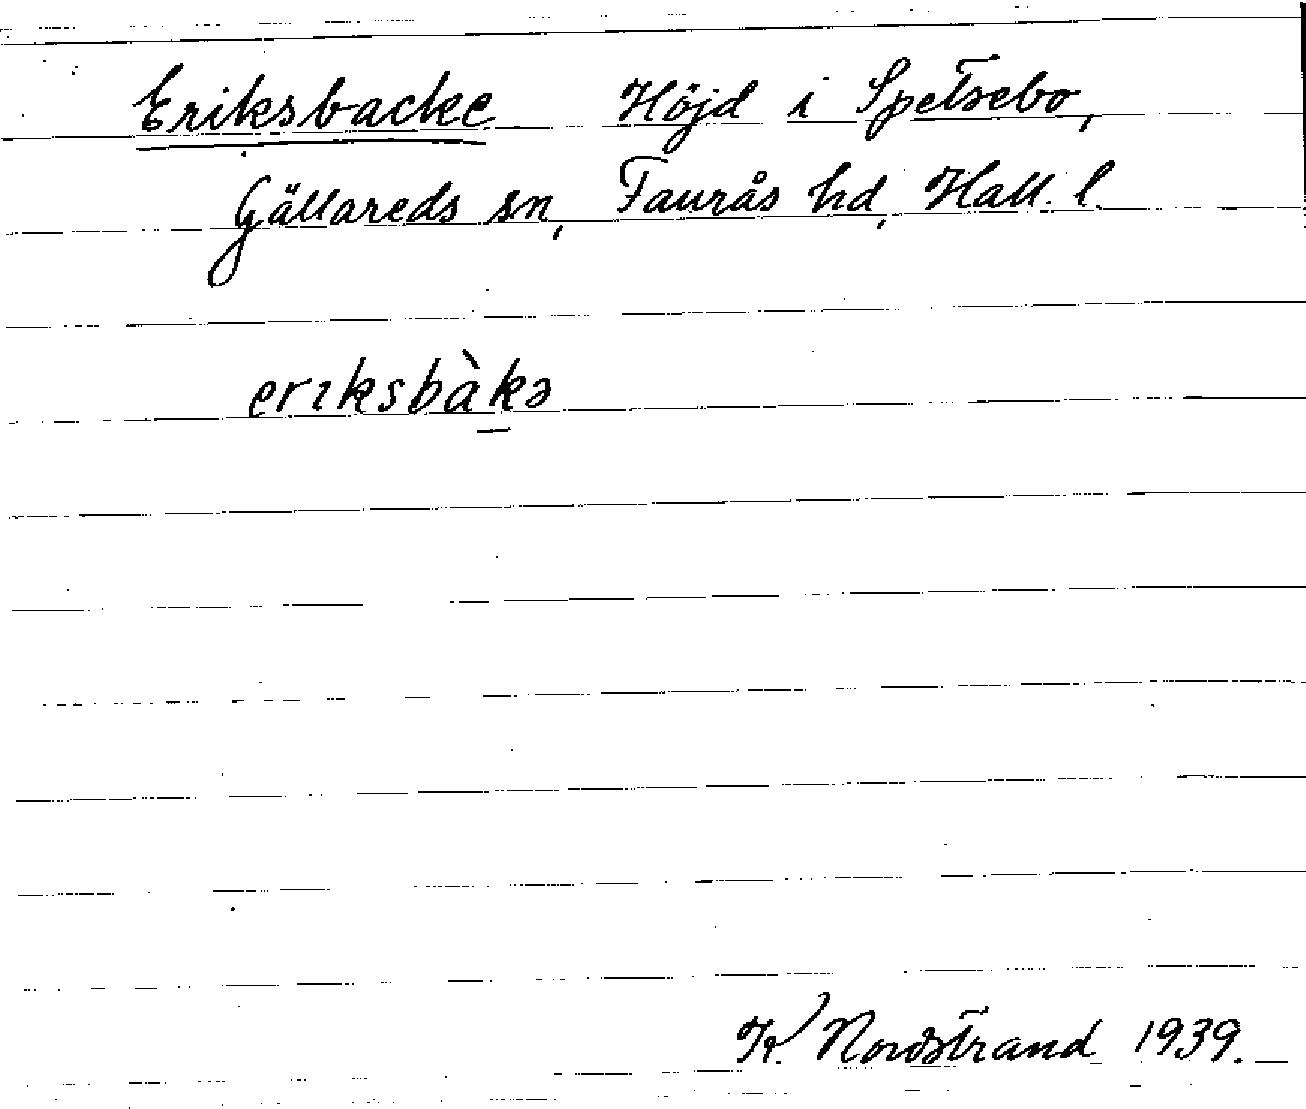 Eriksbacke Höjd i Spetsebo,
Gällareds sn, Faurås hd, Hall. l.
erıksbàkə
K. Nordstrand 1939.